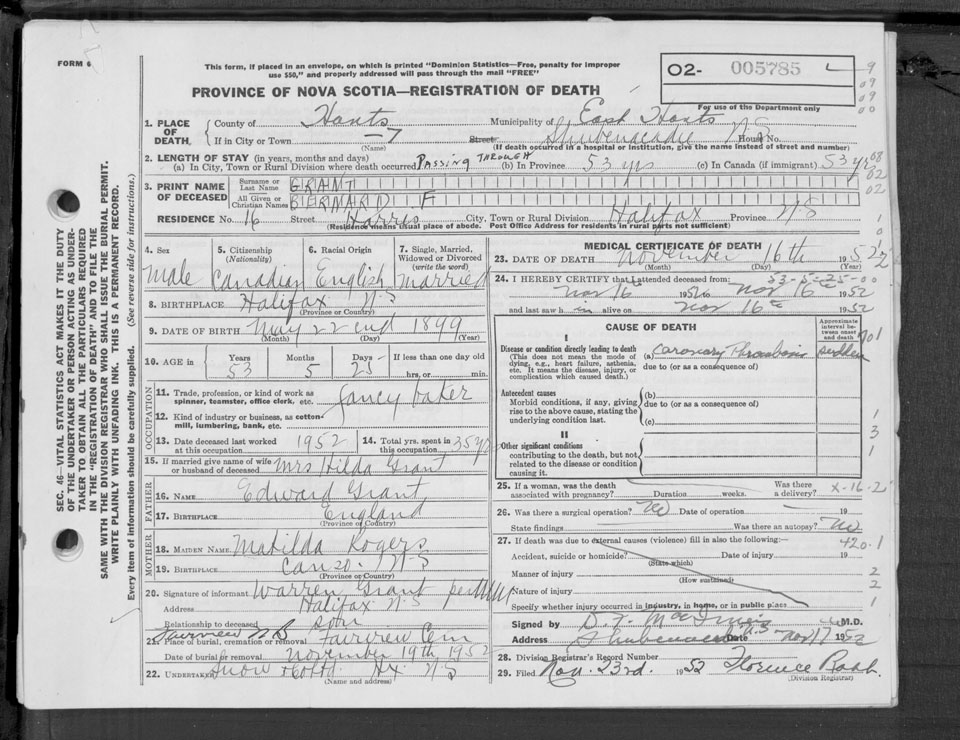 FORM 6
This form, if placed in an envelope, on which is printed "Dominion Statistics—Free, penalty for improper
use $50," and properly addressed will pass through the mail "FREE"
02- 005785
PROVINCE OF NOVA SCOTIA—REGISTRATION OF DEATH
For use of the Department only
SEC. 46—VITAL STATISTICS ACT MAKES IT THE DUTY
OF THE UNDERTAKER OR PERSON ACTING AS UNDER-
TAKER TO OBTAIN ALL THE PARTICULARS REQUIRED
IN THE "REGISTRATION OF DEATH" AND TO FILE THE
SAME WITH THE DIVISION REGISTRAR WHO SHALL ISSUE THE BURIAL PERMIT.
WRITE PLAINLY WITH UNFADING INK. THIS IS A PERMANENT RECORD.
Every item of information should be carefully supplied. (See reverse side for instructions.)
1. PLACE OF DEATH. County of Hants Municipality of East Hants
If in City or Town (Name) Street Shubenacadie House No. N.S
(If death occurred in a hospital or institution, give the name instead of street and number)
2. LENGTH OF STAY (in years, months and days)
(a) In City, Town or Rural Division where death occurred PASSING THROUGH (b) In Province 53 yrs (c) In Canada (if immigrant) 53 yrs
3. PRINT NAME OF DECEASED Surname or Last Name GRANT
All Given or Christian Names BERNARD F
RESIDENCE No. 16 Street Harris City, Town or Rural Division Halifax Province N.S
(Residence means usual place of abode. Post Office Address for residents in rural parts not sufficient)
4. Sex Male
5. Citizenship (Nationality) Canadian
6. Racial Origin English
7. Single, Married, Widowed or Divorced (write the word) Married
8. BIRTHPLACE Halifax N-S
(Province or Country)
9. DATE OF BIRTH May 22nd 1899
(Month) (Day) (Year)
10. AGE IN Years 53 Months 5 Days 25 If less than one day old hrs. or min.
OCCUPATION
11. Trade, profession, or kind of work as spinner, teamster, office clerk, etc. fancy baker
12. Kind of industry or business, as cotton-mill, lumbering, bank, etc.
13. Date deceased last worked at this occupation 1952
14. Total yrs. spent in this occupation 35 yrs
15. If married give name of wife or husband of deceased Mrs Hilda Grant
FATHER
16. NAME Edward Grant
17. BIRTHPLACE England
(Province or Country)
MOTHER
18. MAIDEN NAME Matilda Rogers
19. BIRTHPLACE Canso. N-S
(Province or Country)
20. Signature of informant Warren Grant per
Address Halifax N-S
Relationship to deceased son
21. Place of burial, cremation or removal Fairview Cem
Date of burial or removal November 19th, 1952
22. UNDERTAKER Snow Hx N-S
(Name and address)
MEDICAL CERTIFICATE OF DEATH
23. DATE OF DEATH November 16th 1952
(Month) (Day) (Year)
24. I HEREBY CERTIFY that I attended deceased from: 53-5-25-00
Nov 16 1952 to Nov 16 1952
and last saw h alive on Nov 16 1952
CAUSE OF DEATH
Approximate interval between onset and death
I
Disease or condition directly leading to death
(This does not mean the mode of dying, e.g., heart failure, asthenia, etc. It means the disease, injury, or complication which caused death.)
(a) Coronary Thrombosis sudden
due to (or as a consequence of)
Antecedent causes
Morbid conditions, if any, giving rise to the above cause, stating the underlying condition last.
(b)
due to (or as a consequence of)
(c)
II
Other significant conditions
contributing to the death, but not related to the disease or condition causing it.
25. If a woman, was the death associated with pregnancy? Duration weeks. Was there a delivery? X-16-2
26. Was there a surgical operation? No Date of operation 19
State findings Was there an autopsy? No
27. If death was due to external causes (violence) fill in also the following:—
420.1
Accident, suicide or homicide? Date of injury 19
(State which)
Manner of injury
(How sustained)
Nature of injury
Specify whether injury occurred in industry, in home, or in public place
Signed by M.D.
Address Shubenacadie N.S Date Nov 17 1952
28. Division Registrar's Record Number
29. Filed Nov. 23rd. 1952 Florence
(Division Registrar)